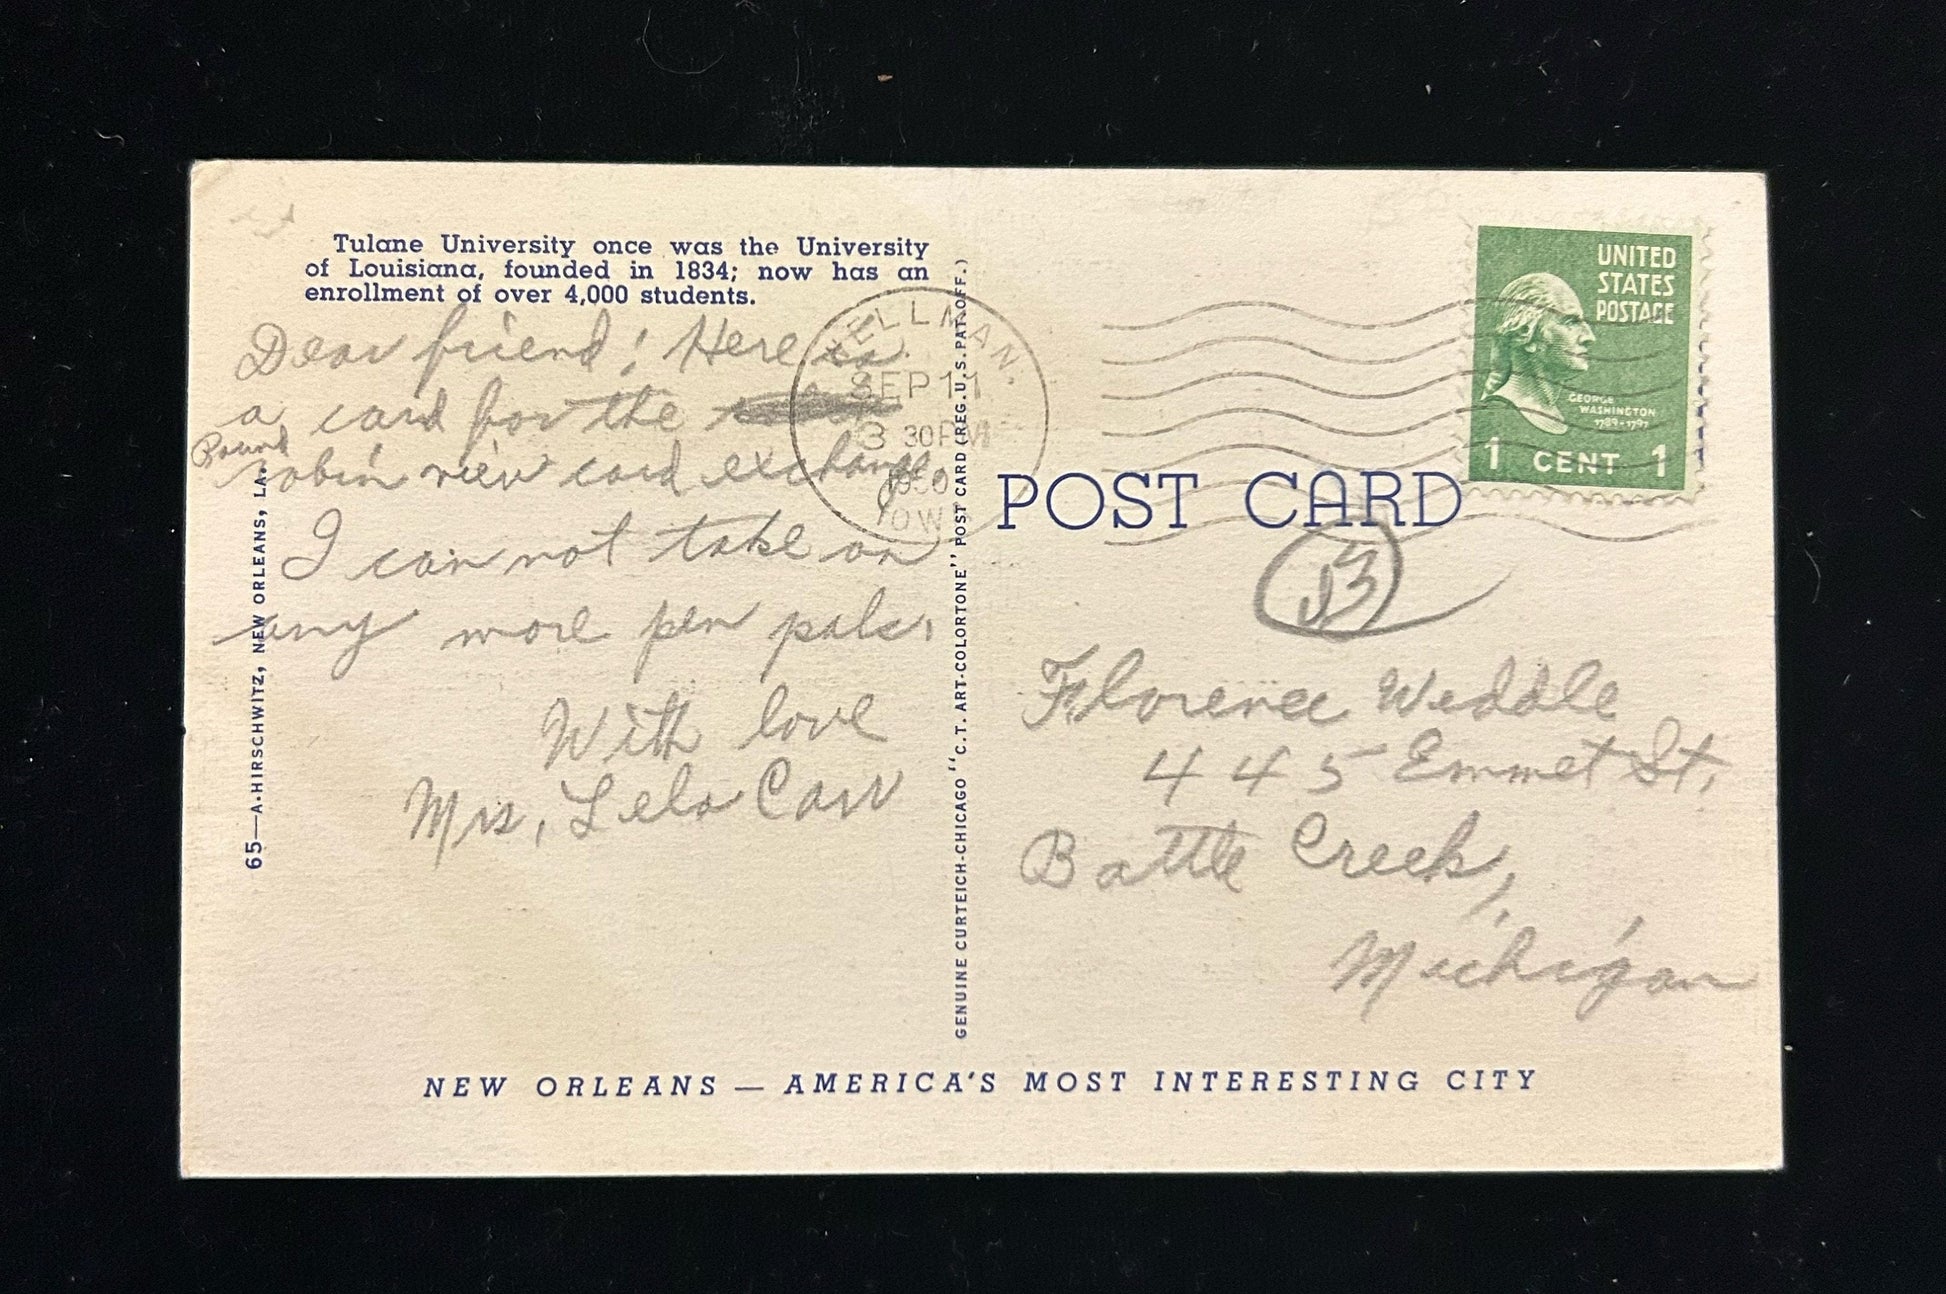 Tulane University once was the University
of Louisiana, founded in 1834; now has an
enrollment of over 4,000 students.
Dear friend! Here is
a card for the
Round
robin view card exchange
I can not take on
any more pen pals.
With love
Mrs, Lela Carr
65—A·HIRSCHWITZ, NEW ORLEANS, LA.
GENUINE CURTEICH-CHICAGO "C.T. ART-COLORTONE" POST CARD (REG. U.S. PAT. OFF.)
KELLMAN.
SEP 11
3 30 PM
1950
IOWA
UNITED
STATES
POSTAGE
GEORGE
WASHINGTON
1789-1797
1 CENT 1
POST CARD
53
Florence Weddle
445 Emmet St,
Battle Creek,
Michigan
NEW ORLEANS — AMERICA'S MOST INTERESTING CITY